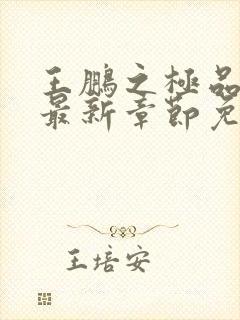 王鹏之極品
最新章節免
王培安